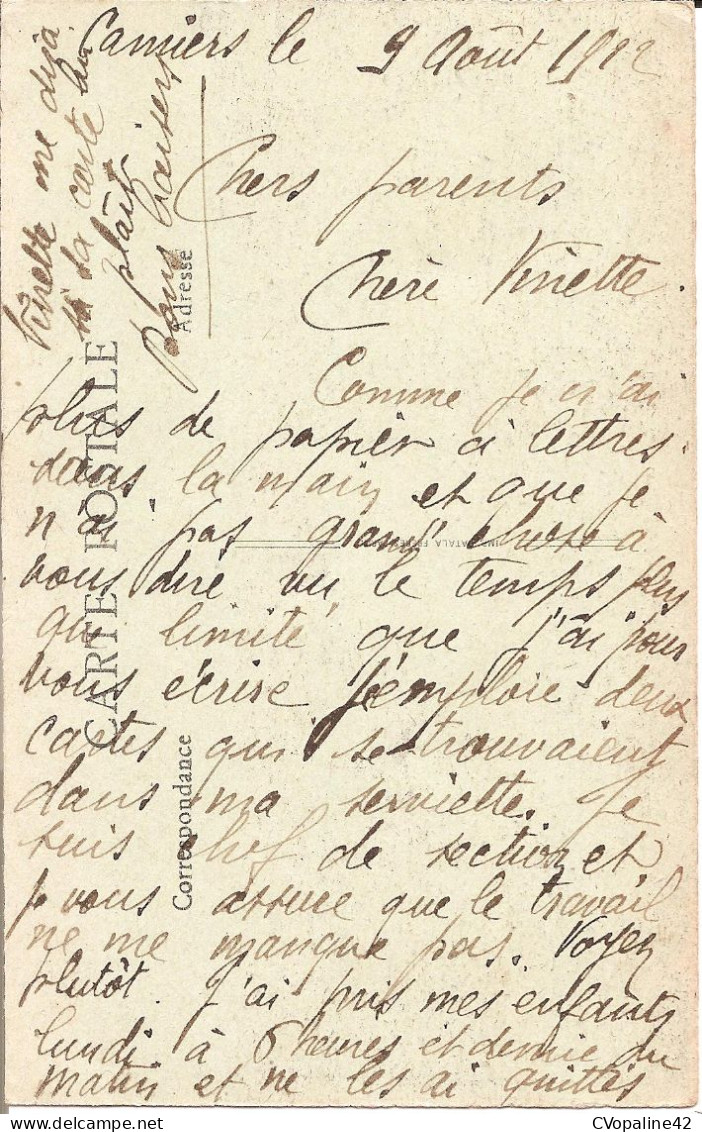 Camiers le 9 Août 1922
Chers parents
Chère Vinette.
Comme je n'ai
plus de papier à lettres
dans la main et que je
n'ai pas grand chose à
vous dire vu le temps plus
que limité que j'ai pour
vous écrire j'emploie deux
cartes qui se trouvaient
dans ma serviette. Je
suis chef de section et
je vous assure que le travail
ne me manque pas. Voyez
plutôt. J'ai pris mes enfants
lundi à 6 heures et demie du
matin et ne les ai quittés
Vinette me dira
si sa carte lui
plaît
Bons baisers
CARTE POSTALE
Correspondance
Adresse
CVopaline42